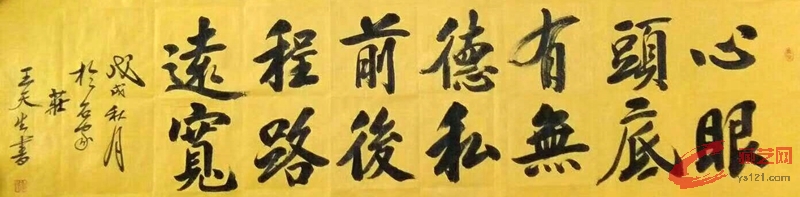 心頭有德前程遠
眼底無私後路寬
戊戌秋月
於石家
莊
王天生書
艺网
ys121.com